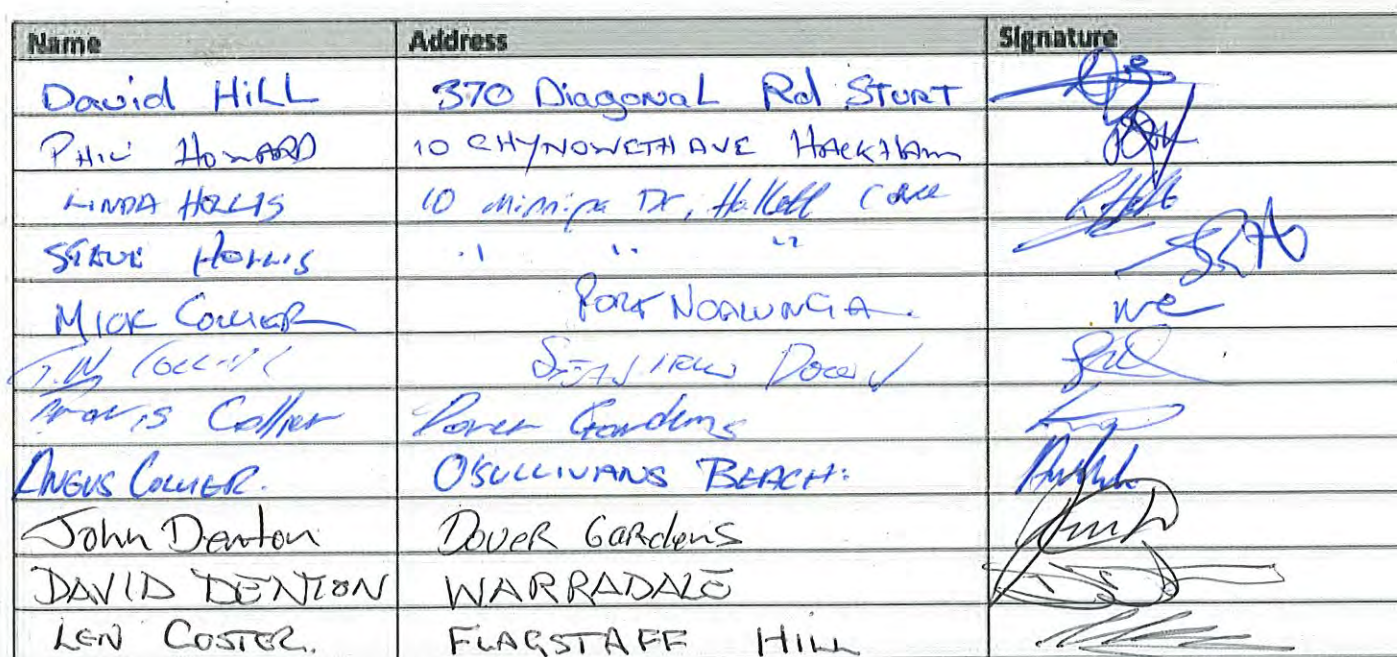 Name Address Signature
David HiLL 370 Diagonal Rd STURT
PHIL HOWARD 10 CHYNOWETH AVE HACKHAM
LINDA HOLLIS 10 Minnipa Dr, Hallett Cove
STEVE HOLLIS " " "
MICK COLLIER PORT NOARLUNGA.
Collier Down
Travis Collier Dover Gardens
ANGUS COLLIER. O'SULLIVANS BEACH.
John Denton DOVER GARdENS
DAVID DENTON WARRADALE
LEN COSTER. FLAGSTAFF HILL